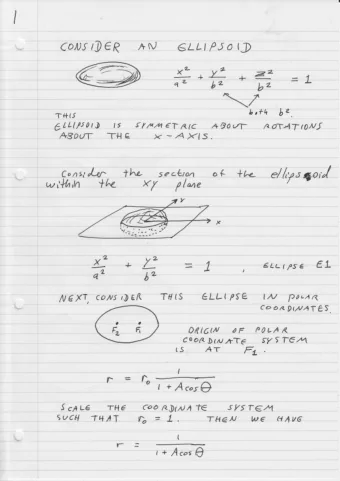 1
CONSIDER AN ELLIPSOID
x²/a² + y²/b² + z²/b² = 1
both b².
THIS
ELLIPSOID IS SYMMETRIC ABOUT ROTATIONS
ABOUT THE X-AXIS.
Consider the section of the ellipsoid
within the xy plane
y
x
x²/a² + y²/b² = 1 , ELLIPSE E1
NEXT, CONSIDER THIS ELLIPSE IN POLAR
COORDINATES.
F₂ F₁
ORIGIN OF POLAR
COORDINATE SYSTEM
IS AT F₁.
r = r₀ 1/(1 + A cos θ)
SCALE THE COORDINATE SYSTEM
SUCH THAT r₀ = 1. THEN WE HAVE
r = 1/(1 + A cos θ)